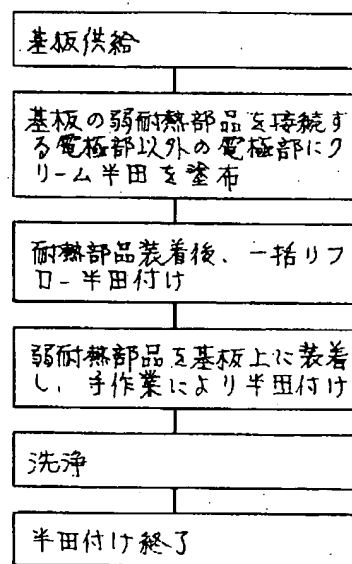 基板供給
基板の弱耐熱部品を接続す
る電極部以外の電極部にク
リーム半田を塗布
耐熱部品装着後、一括リフ
ロー半田付け
弱耐熱部品を基板上に装着
し、手作業により半田付け
洗浄
半田付け終了